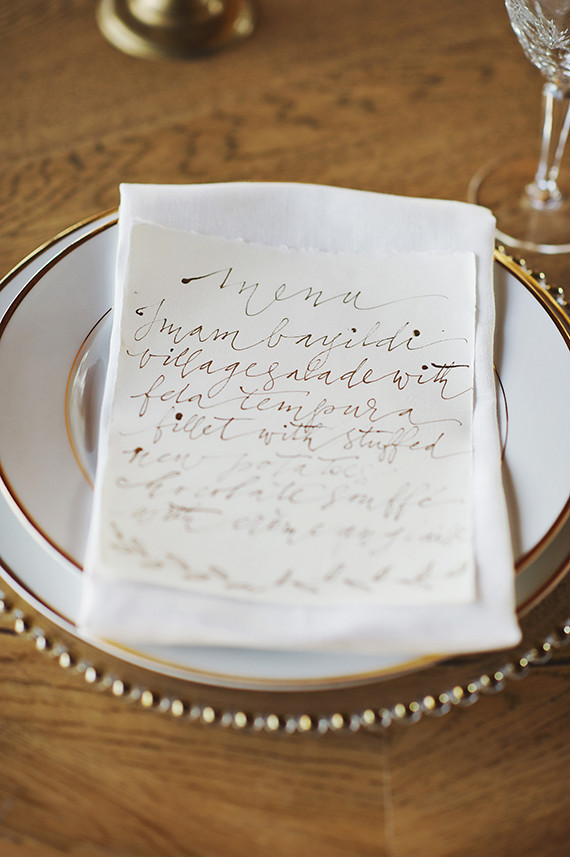 Menu
Imam bayildi
village salade with
feta tempura
fillet with stuffed
new potatoes
chocolate soufflé
with crème anglaise